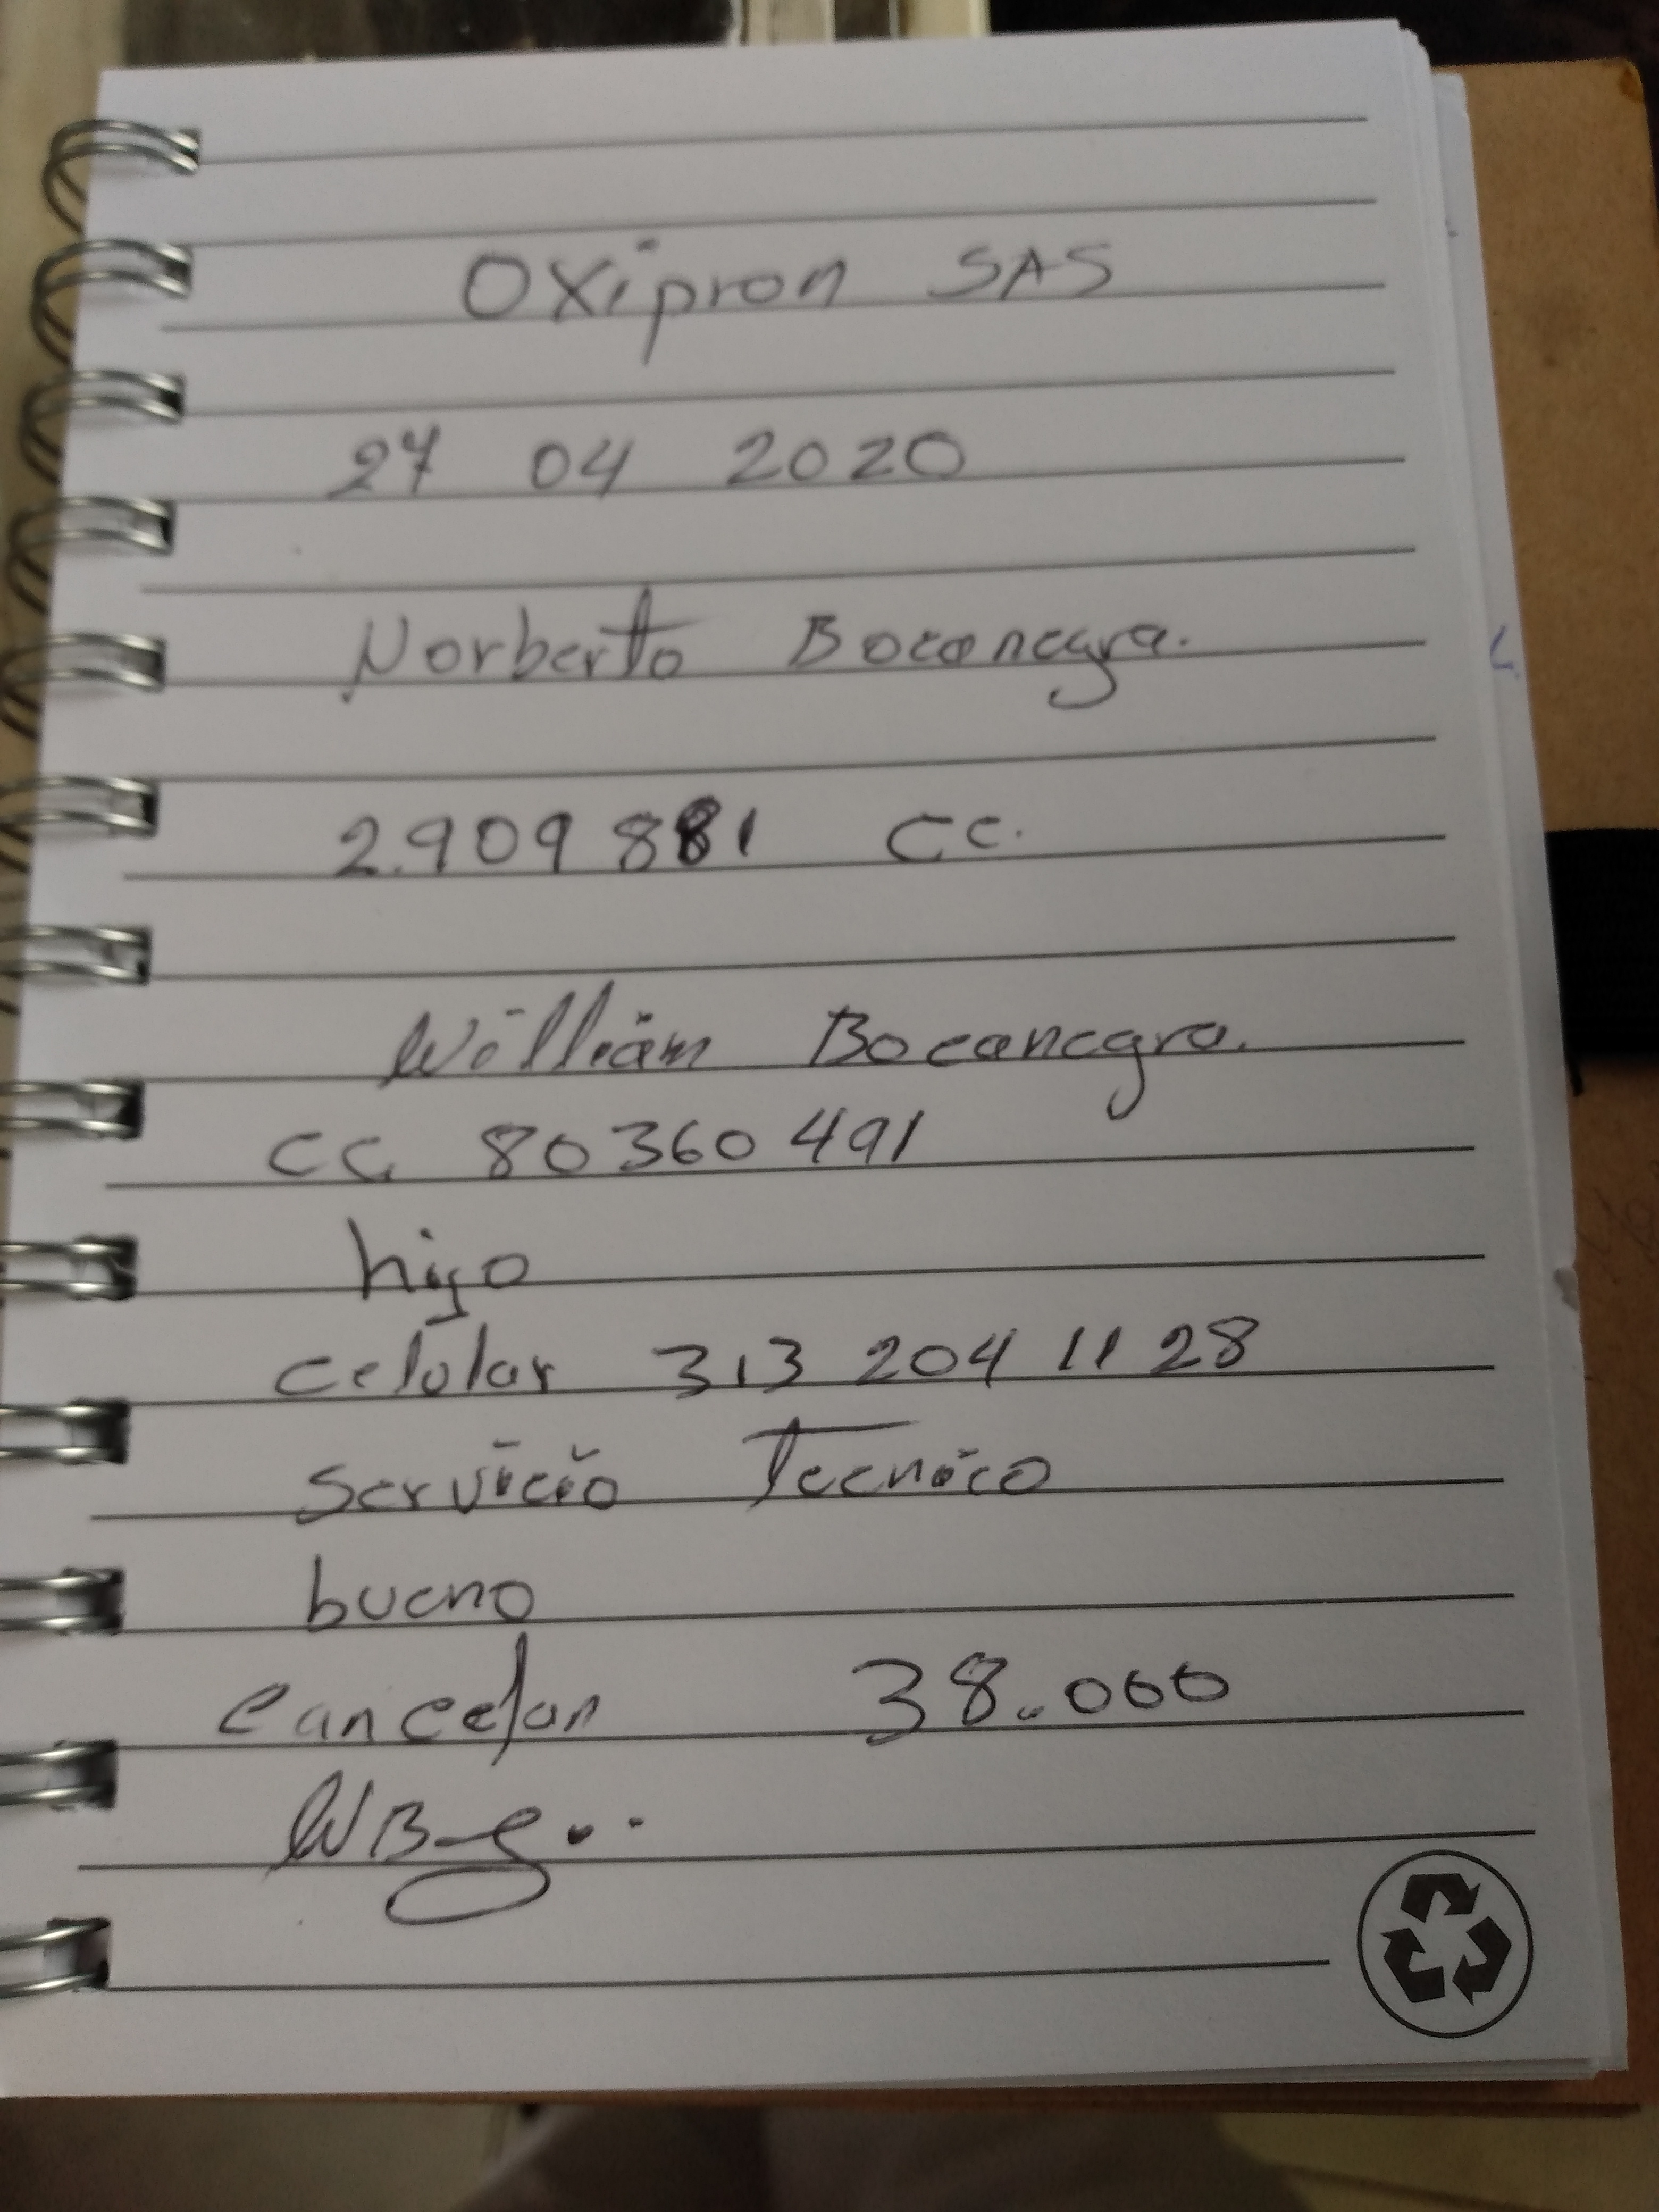 Oxipron SAS
27 04 2020
Norberto Bocanegra.
2.909881 CC.
William Bocanegra.
CC. 80360491
hijo
celular 313 204 11 28
servicio Tecnico
bueno
cancelan 38.000